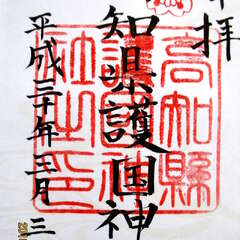 拝
知県護国神
平成三十年三月三
高知縣
護國神
社之印